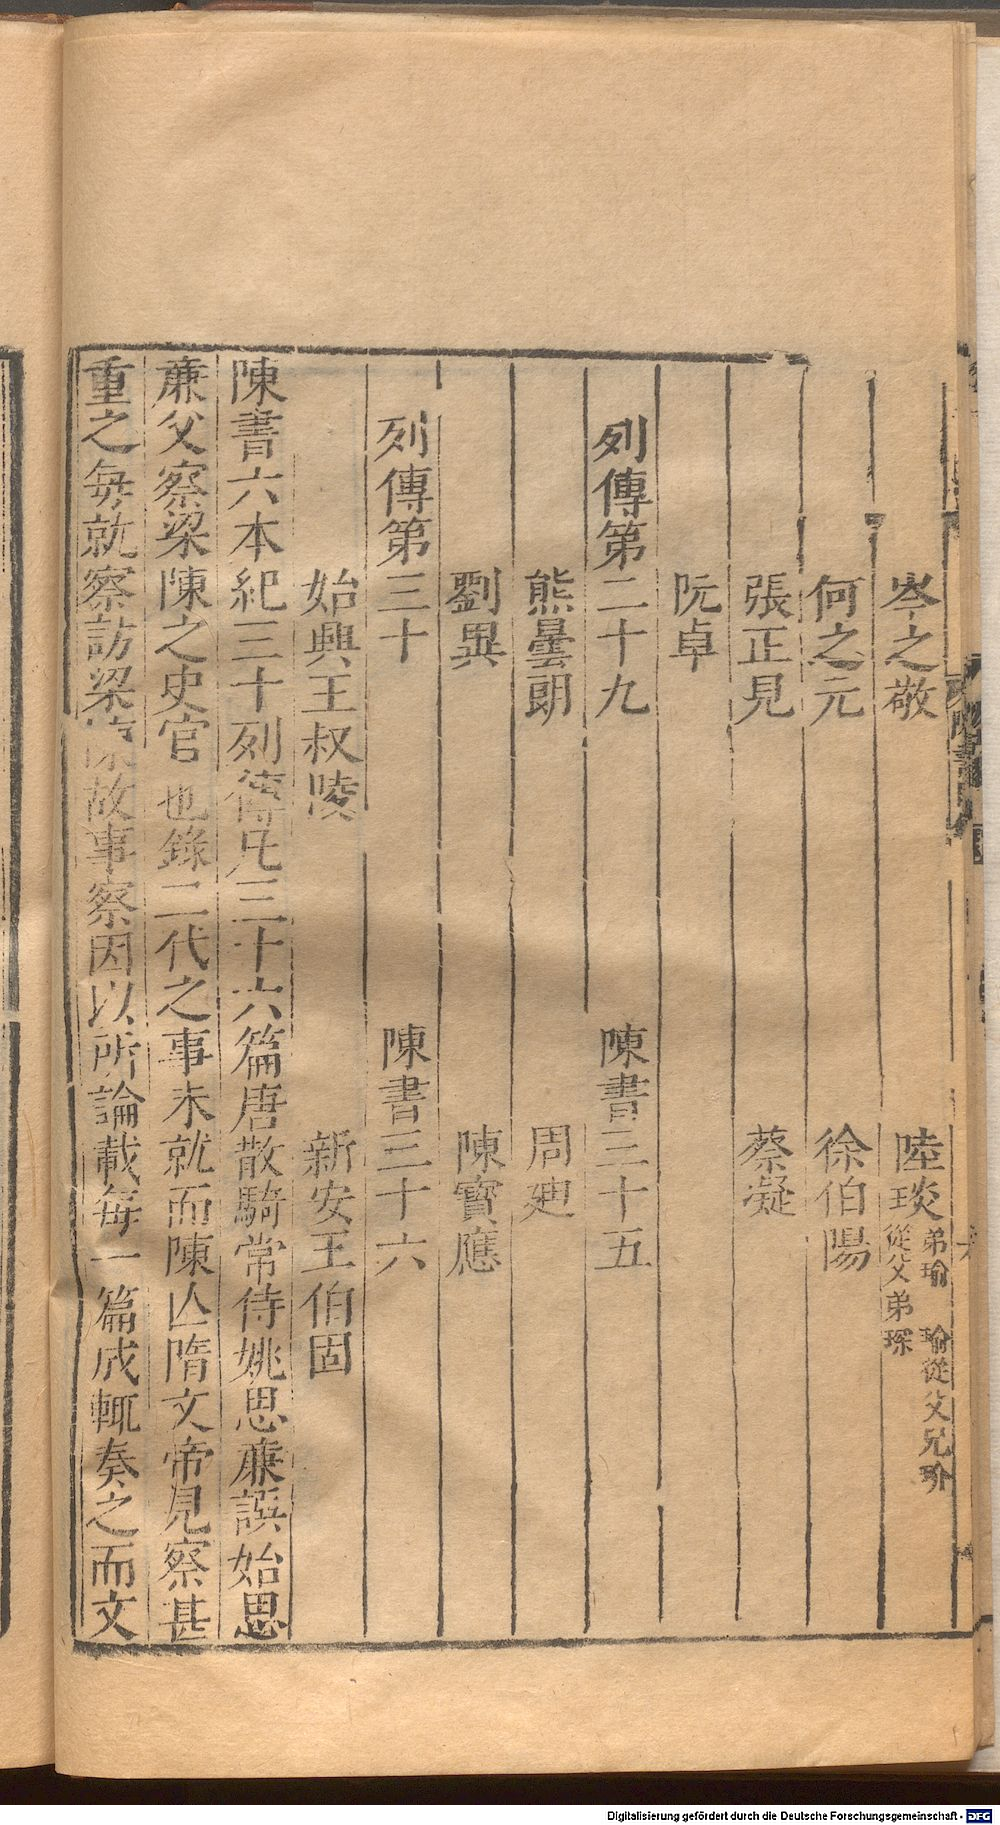 岑之敬 陸琰 弟瑜 瑜從父兄玠 從父弟琛
何之元 徐伯陽
張正見 蔡凝
阮卓
列傳第二十九 陳書三十五
熊曇朗 周迪
劉異 陳寶應
列傳第三十 陳書三十六
始興王叔陵 新安王伯固
陳書六本紀三十列傳凡三十六篇唐散騎常侍姚思廉譔始思
廉父察梁陳之史官也錄二代之事未就而陳亾隋文帝見察甚
重之每就察訪梁陳故事察因以所論載每一篇成輒奏之而文
Digitalisierung gefördert durch die Deutsche Forschungsgemeinschaft - DFG